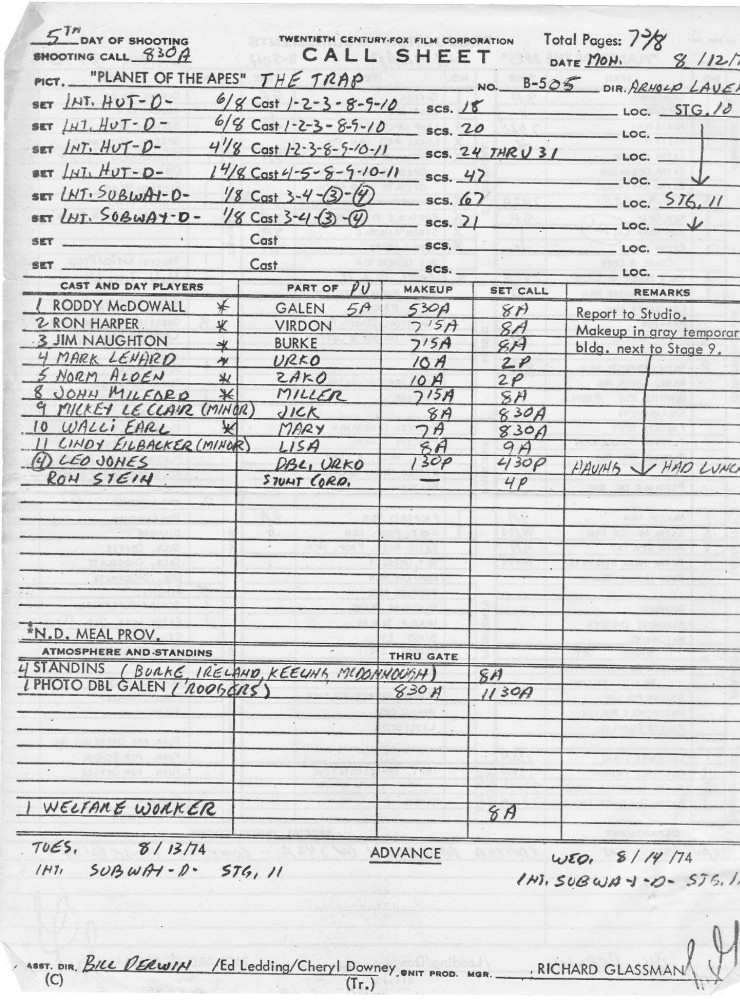 5TH DAY OF SHOOTING TWENTIETH CENTURY-FOX FILM CORPORATION Total Pages: 7 3/8
SHOOTING CALL 830A CALL SHEET DATE MON. 8/12/7
PICT. "PLANET OF THE APES" THE TRAP NO. B-505 DIR. ARNOLD LAVEN
SET INT. HUT-D- 6/8 Cast 1-2-3-8-9-10 SCS. 18 LOC. STG. 10
SET INT. HUT-D- 6/8 Cast 1-2-3-8-9-10 SCS. 20 LOC.
SET INT. HUT-D- 4 1/8 Cast 1-2-3-8-9-10-11 SCS. 24 THRU 31 LOC.
SET INT. HUT-D- 1 4/8 Cast 4-5-8-9-10-11 SCS. 42 LOC.
SET INT. SUBWAY-D- 1/8 Cast 3-4-(3)-(4) SCS. 67 LOC. STG. 11
SET INT. SUBWAY-D- 1/8 Cast 3-4-(3)-(4) SCS. 71 LOC.
SET Cast SCS. LOC.
SET Cast SCS. LOC.
CAST AND DAY PLAYERS PART OF PU MAKEUP SET CALL REMARKS
1 RODDY McDOWALL * GALEN 5A 530A 8A Report to Studio.
2 RON HARPER * VIRDON 715A 8A Makeup in gray temporar
3 JIM NAUGHTON * BURKE 715A 8A bldg. next to Stage 9.
4 MARK LENARD * URKO 10A 2P
5 NORM ALDEN * ZAKO 10A 2P
8 JOHN MILFORD * MILLER 715A 8A
9 MICKEY LE CLAIR (MINOR) JICK 8A 830A
10 WALLI EARL * MARY 7A 830A
11 CINDY EILBACKER (MINOR) LISA 8A 9A
(4) LEO JONES DBL. URKO 130P 430P HAVING HAD LUNCH
RON STEIN STUNT CORD. — 4P
*N.D. MEAL PROV.
ATMOSPHERE AND STANDINS THRU GATE
4 STANDINS (BURKE, IRELAND, KEELING, MCDONNOUGH) 8A
1 PHOTO DBL GALEN (RODGERS) 830A 1130A
1 WELFARE WORKER 8A
TUES. 8/13/74 ADVANCE WED. 8/14/74
INT. SUBWAY-D- STG. 11 INT. SUBWAY-D- STG. 11
ASST. DIR. BILL DERWIN /Ed Ledding/Cheryl Downey UNIT PROD. MGR. , RICHARD GLASSMAN
(C) (Tr.)